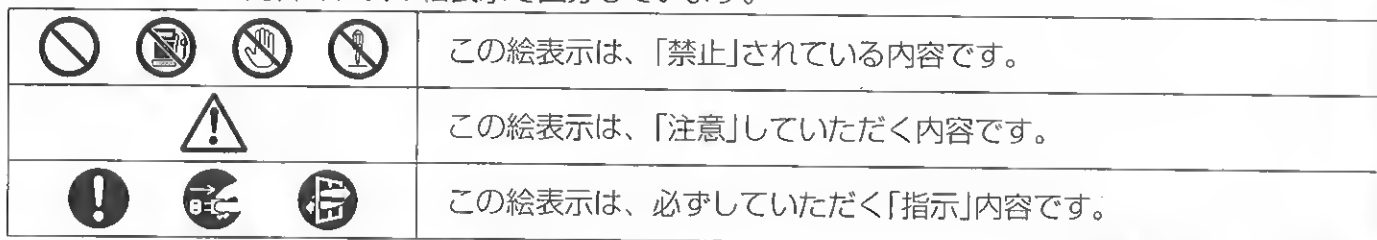 絵表示で区分しています。
この絵表示は、「禁止」されている内容です。
この絵表示は、「注意」していただく内容です。
この絵表示は、必ずしていただく「指示」内容です。